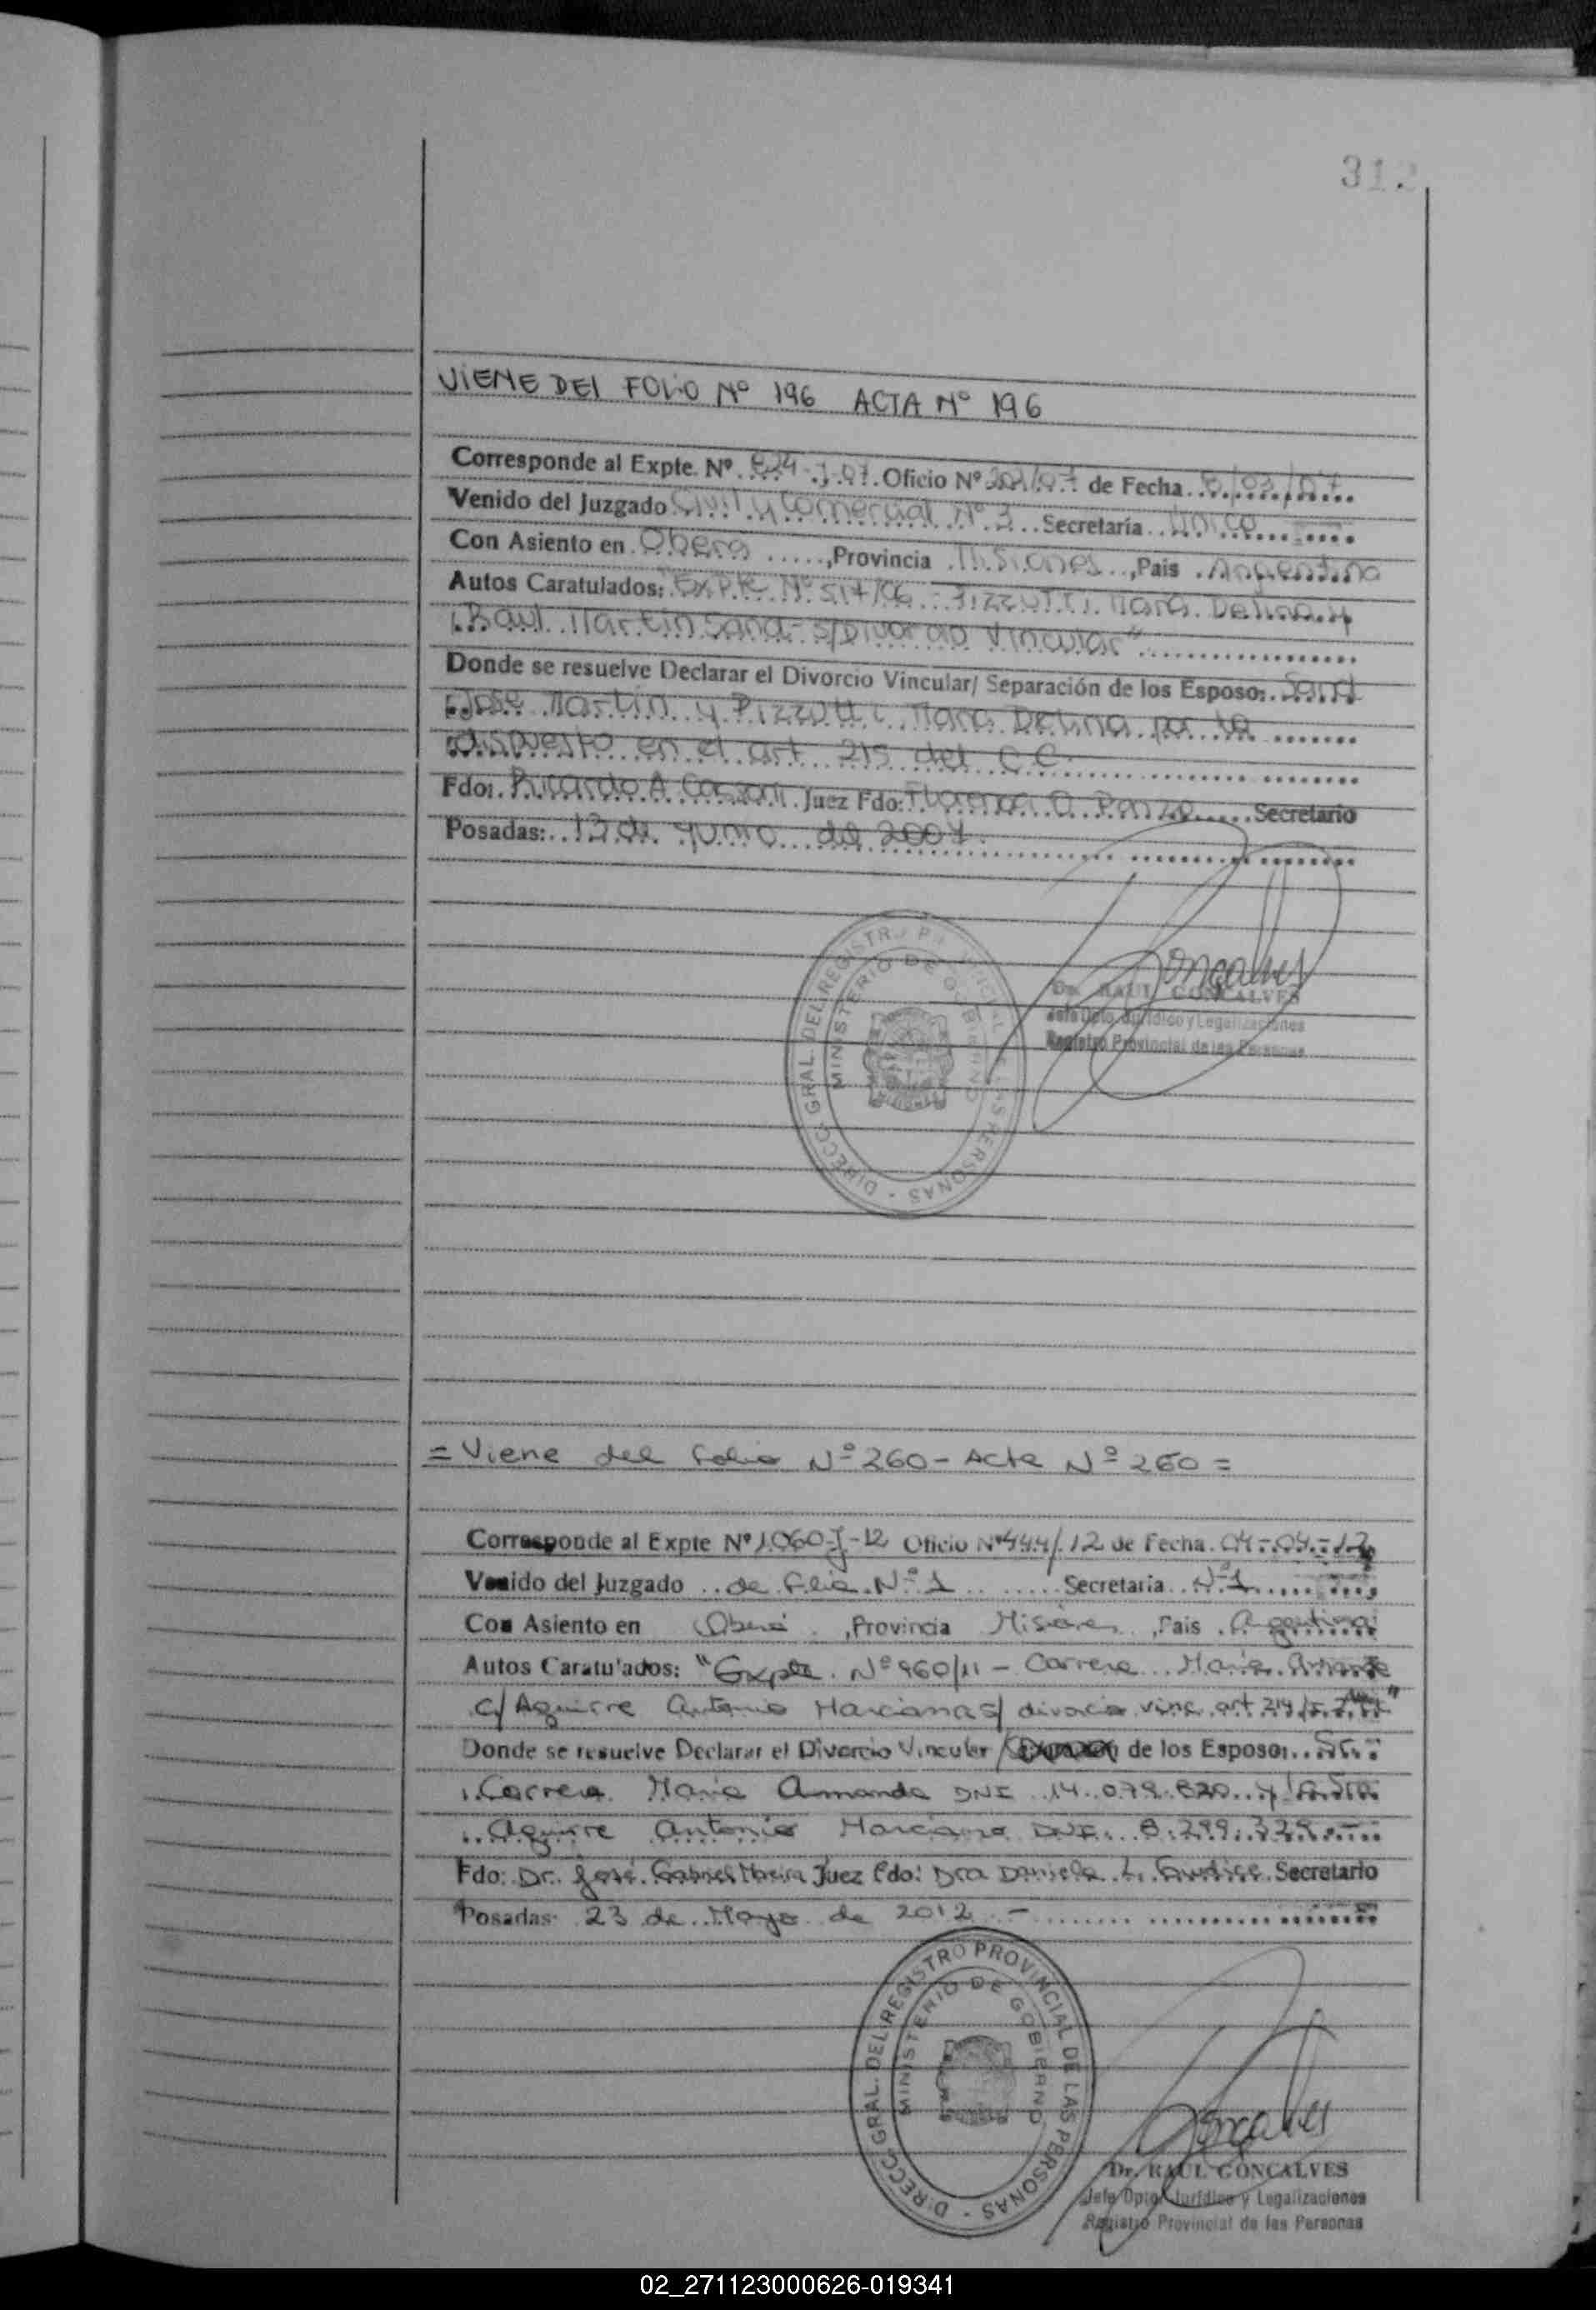 312
VIENE DEL FOLIO Nº 196 ACTA Nº 196
Corresponde al Expte. Nº 824-J-07. Oficio Nº 201/07 de Fecha /03/07
Venido del Juzgado Civil y Comercial Nº 3 Secretaría Unica
Con Asiento en Obera, Provincia Misiones, Pais Argentina
Autos Caratulados: "Expte Nº 517/06 - Pizzutti Mara Delina y
Raul Martin Sand - s/Divorcio Vincular"
Donde se resuelve Declarar el Divorcio Vincular/ Separación de los Esposo: Sand
Jose Martin y Pizzutti Mara Delina por lo
dispuesto en el art 215 del C.C.
Fdo: Ricardo A. Juez Fdo: Secretario
Posadas: 13 de junio de 2007.
DIRECC. GRAL. DEL REGISTRO PROVINCIAL DE LAS PERSONAS
MINISTERIO DE GOBIERNO
Dr. RAUL GONCALVES
Jefe Dpto. Jurídico y Legalizaciones
Registro Provincial de las Personas
= Viene del folio Nº 260 - Acta Nº 260 =
Corresponde al Expte Nº 1060-J-12 Oficio Nº 444/12 de Fecha 04-04-12
Venido del Juzgado de Flia. Nº 1 Secretaria Nº 1
Con Asiento en Oberá, Provincia Misiones, Pais Argentina
Autos Caratulados: "Expte. Nº 960/11 - Correa Maria Amanda
c/ Aguirre Antonio Marciano s/ divorcio vinc. art 214
Donde se resuelve Declarar el Divorcio Vincular / de los Esposo: Sr.
Correa Maria Amanda DNI 14.079.820 y
Aguirre Antonio Marciano DNI. 8.299.329
Fdo: Dr. José Gabriel Moreira Juez Fdo: Dra Daniela L. Giudice Secretario
Posadas: 23 de Mayo de 2012 -
DIRECC. GRAL. DEL REGISTRO PROVINCIAL DE LAS PERSONAS
MINISTERIO DE GOBIERNO
Dr. RAUL GONCALVES
Jefe Dpto. Jurídico y Legalizaciones
Registro Provincial de las Personas
02_271123000626-019341